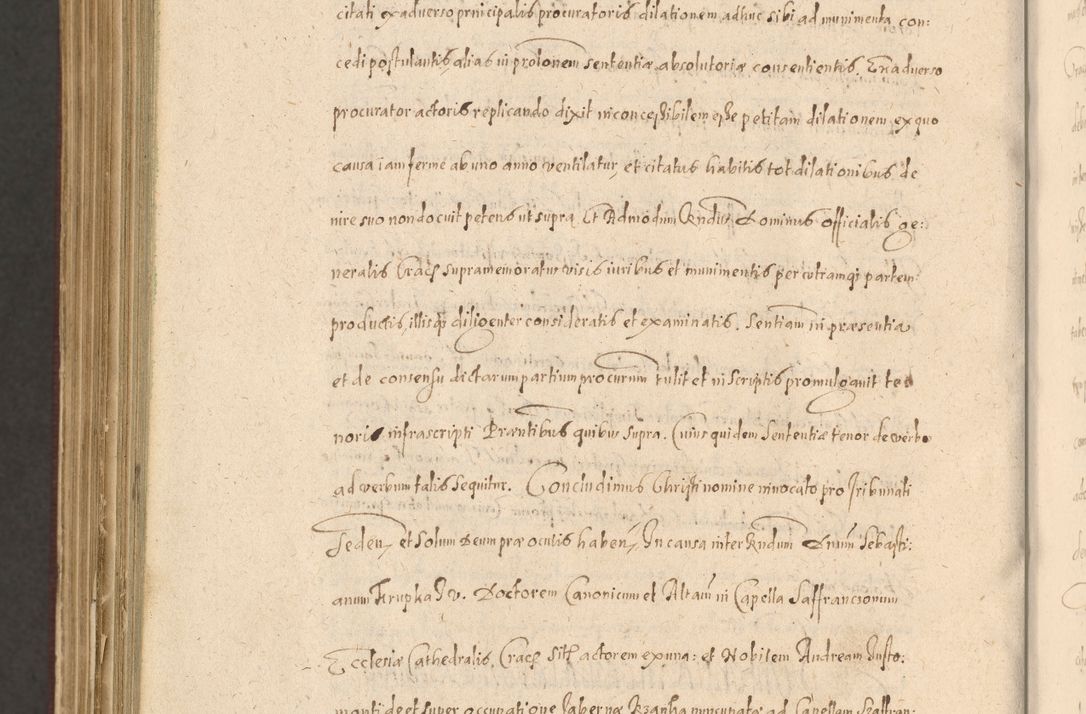 citati ex adverso principalis procuratoris dilationem adhuc sibi ad munimenta con:
cedi postulantis, alias in prolonem sententiæ absolutoriæ consentientis. Ex adverso
procurator actoris replicando dixit inconcessibilem esse petitam dilationem ex quo
causa iam ferme ab uno anno ventilatur, et citatus habitis tot dilationibus de
iure suo non docuit petens ut supra. Et Admodum Rndus Dominus officialis ge:
neralis Crac supramemoratus visis iuribus et munimentis per utramq partem
productis, illisq diligenter consideratis et examinatis. Sentiam in præsentia
et de consensu dictarum partium procurum tulit et in scriptis promulgavit te
noris infrascripti Præntibus quibus supra. Cuius quidem sententiæ tenor de verbo
ad verbum talis sequitur. Concludimus Christi nomine invocato pro Tribunali
seden, et solum Deum præ oculis haben, In causa inter Rndum Dnum Sebasti:
anum Krupka I. V. Doctorem Canonicum et Altam in Capella Saffranciorum
Ecclesiæ Cathedralis Crac sitæ actorem ex una: et Nobilem Andream Justo:
manti de et super occupatione Tabernæ Rzanka nuncupatæ ad Capellam Szaffran: